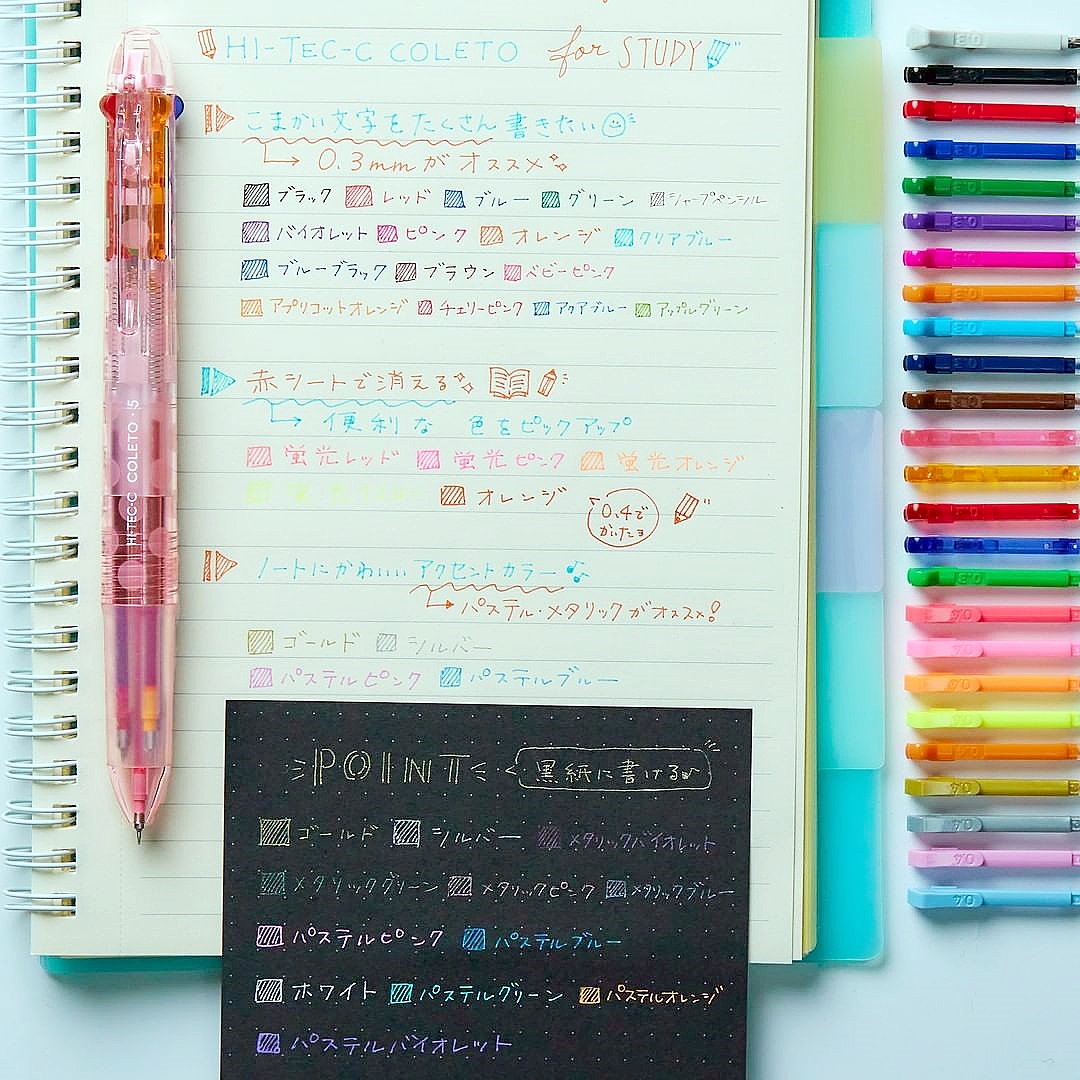 HI-TEC-C COLETO for STUDY
こまかい文字をたくさん書きたい
0.3mmがオススメ
ブラック レッド ブルー グリーン シャープペンシル
バイオレット ピンク オレンジ クリアブルー
ブルーブラック ブラウン ベビーピンク
アプリコットオレンジ チェリーピンク アクアブルー アップルグリーン
赤シートで消える
便利な 色をピックアップ
蛍光レッド 蛍光ピンク 蛍光オレンジ
オレンジ
0.4で
かいたヨ
ノートにかわいいアクセントカラー♪
パステル・メタリックがオススメ!
ゴールド シルバー
パステルピンク パステルブルー
POINT 黒紙に書ける♪
ゴールド シルバー メタリックバイオレット
メタリックグリーン メタリックピンク メタリックブルー
パステルピンク パステルブルー
ホワイト パステルグリーン パステルオレンジ
パステルバイオレット
HI-TEC-C COLETO・5
0.3
0.3
0.3
0.3
0.4
0.4
0.4
0.4
0.4